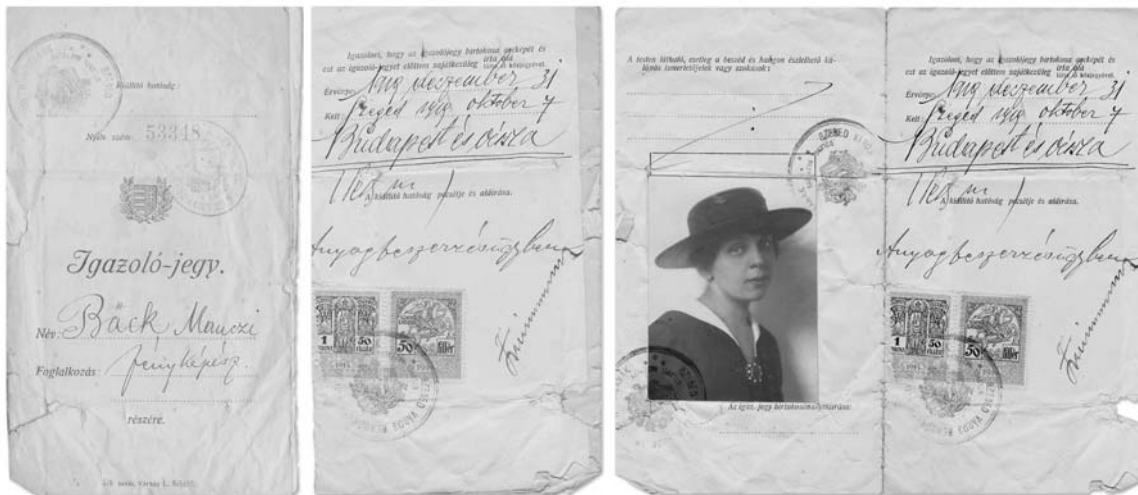 Kiállító hatóság:
Nyilv. szám: 53348
Igazoló-jegy.
Név: Bäck Manczi
Foglalkozás: fényképész
részére.
Igazolom, hogy az igazolójegy birtokosa arcképét és
ezt az igazoló-jegyet előttem sajátkezüleg írta alá
Érvényes: 1919 deszember 31
Kelt: Szeged 1919 oktober 7
Budapest és vissza
A kiállító hatóság pecsétje és aláírása.
Anyagbeszerzési ügyben
1 50
50 fillér
A testen látható, esetleg a beszéd és hangon észlelhető különös ismertetőjelek vagy szokások:
SZEGED
Az igaz.-jegy birtokosának aláírása:
Igazolom, hogy az igazolójegy birtokosa arcképét és
ezt az igazoló-jegyet előttem sajátkezüleg írta alá
Érvényes: 1919 deszember 31
Kelt: Szeged 1919 oktober 7
Budapest és vissza
A kiállító hatóság pecsétje és aláírása.
Anyagbeszerzési ügyben
1 50
50 fillér